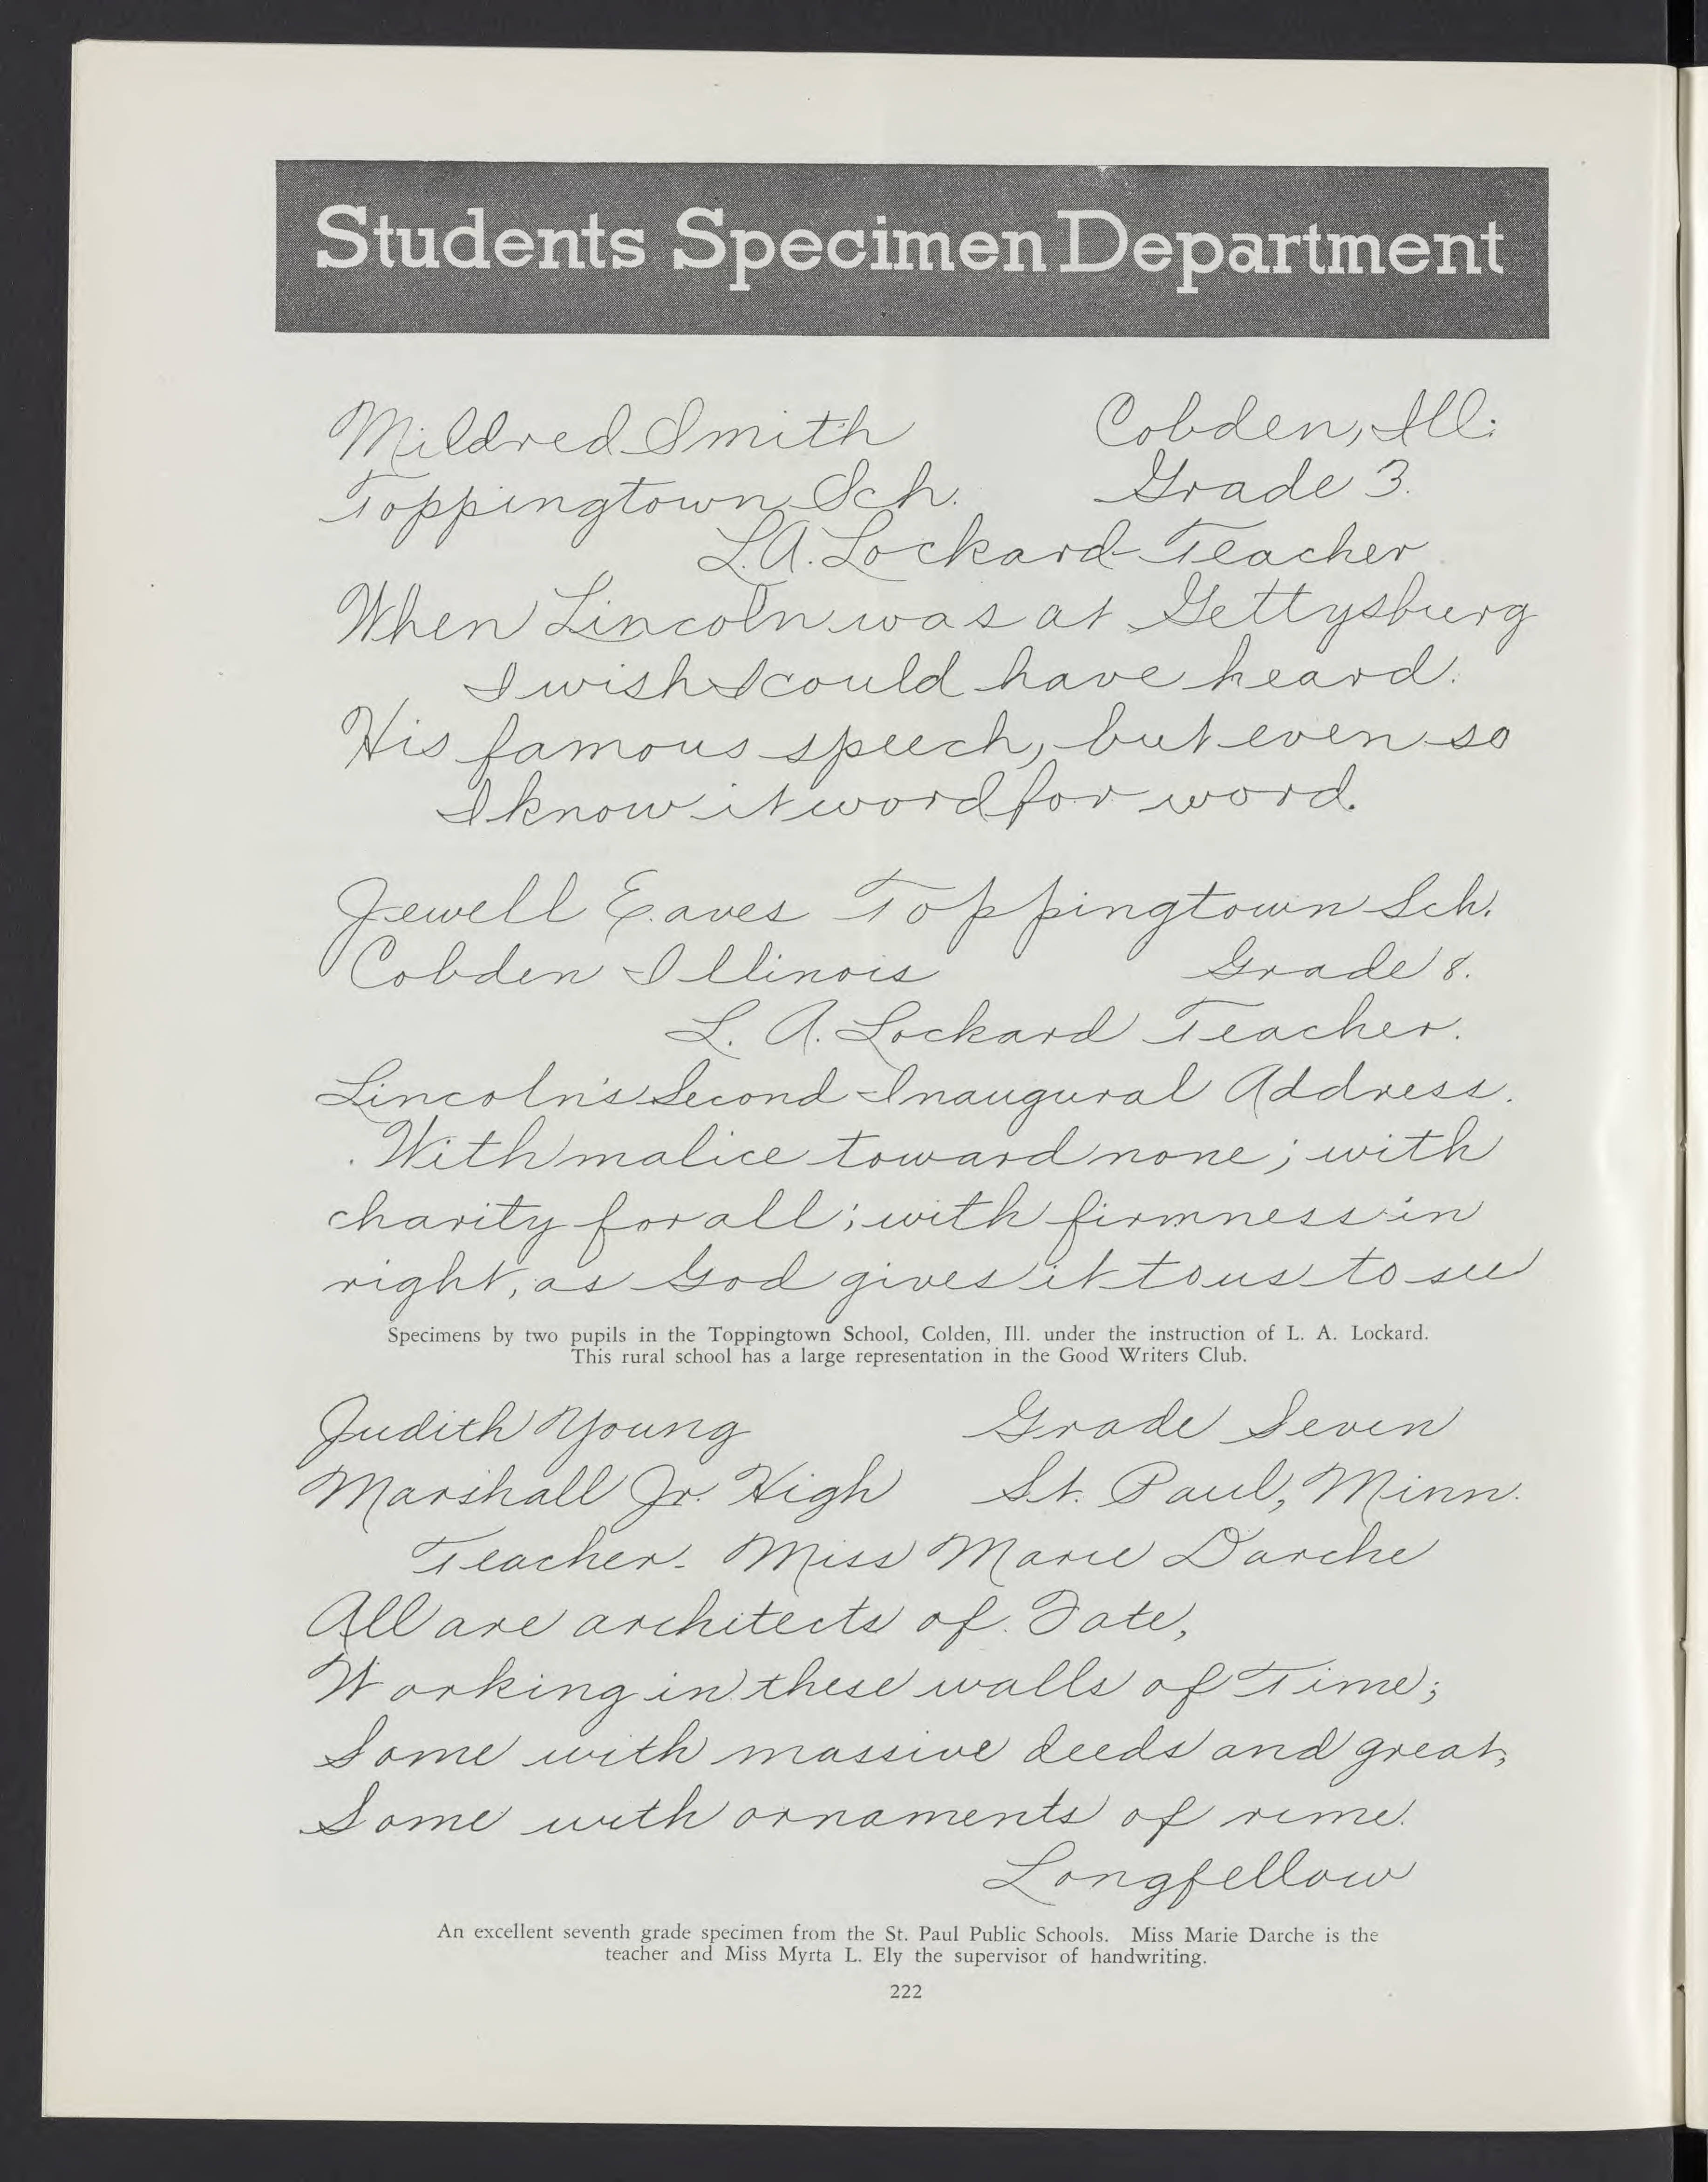 Students Specimen Department
Mildred Smith Cobden, Ill.
Toppingtown Sch. Grade 3.
L.A. Lockard Teacher
When Lincoln was at Gettysburg
I wish I could have heard.
His famous speech, but even so
I know it word for word.
Jewell Eaves Toppingtown Sch.
Cobden Illinois Grade 8.
L. A. Lockard Teacher.
Lincoln's Second Inaugural Address.
With malice toward none; with
charity for all; with firmness in
right, as God gives it to us to see
Specimens by two pupils in the Toppingtown School, Colden, Ill. under the instruction of L. A. Lockard.
This rural school has a large representation in the Good Writers Club.
Judith Young Grade Seven
Marshall Jr. High St. Paul, Minn.
Teacher- Miss Marie Darche
All are architects of Fate,
Working in these walls of Time;
Some with massive deeds and great,
Some with ornaments of rime.
Longfellow
An excellent seventh grade specimen from the St. Paul Public Schools. Miss Marie Darche is the
teacher and Miss Myrta L. Ely the supervisor of handwriting.
222